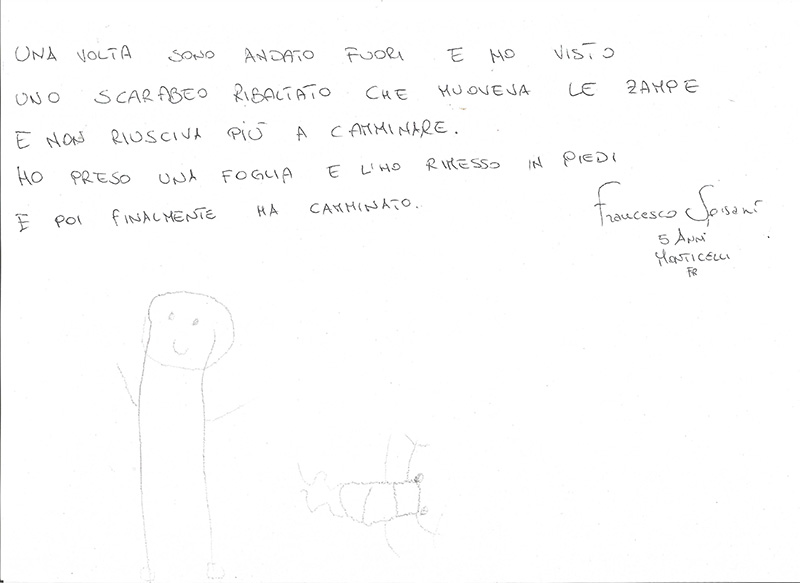 UNA VOLTA SONO ANDATO FUORI E HO VISTO
UNO SCARABEO RIBALTATO CHE MUOVEVA LE ZAMPE
E NON RIUSCIVA PIÙ A CAMMINARE.
HO PRESO UNA FOGLIA E L'HO RIMESSO IN PIEDI
E POI FINALMENTE HA CAMMINATO.
Francesco Spisani
5 ANNI
MONTICELLI
FR